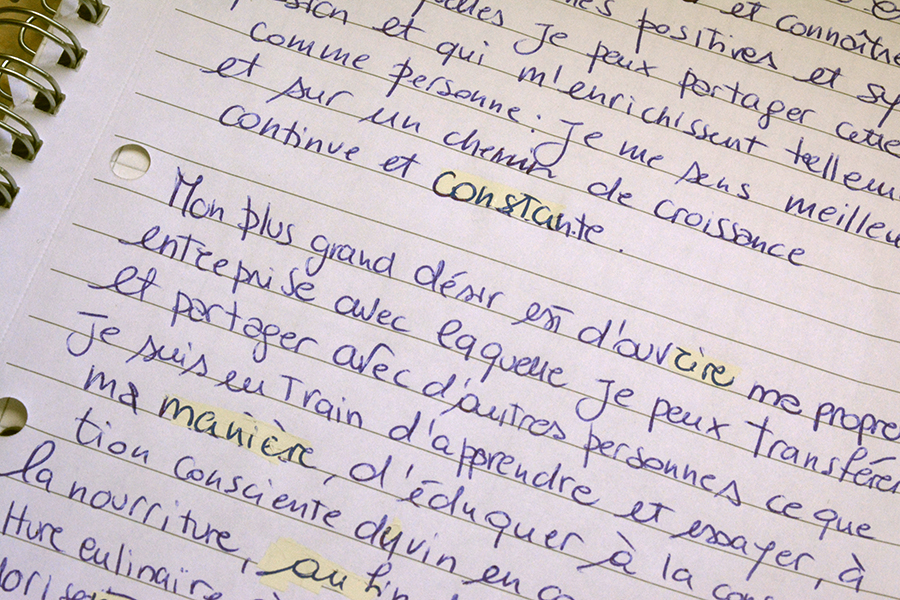 et connaître
positives et
je peux partager cette
et qui m'enrichissent telleme
comme personne. Je me sens meilleu
et sur un chemin de croissance
continue et constante.
Mon plus grand désir est d'ouvrire me propre
entreprise avec laquelle je peux transférer
et partager avec d'autres personnes ce que
Je suis en train d'apprendre et essayer, à
ma manière, d'éduquer à la cons
tion consciente dyvin en co
la nourriture, au fin
lture eulinaire
loris